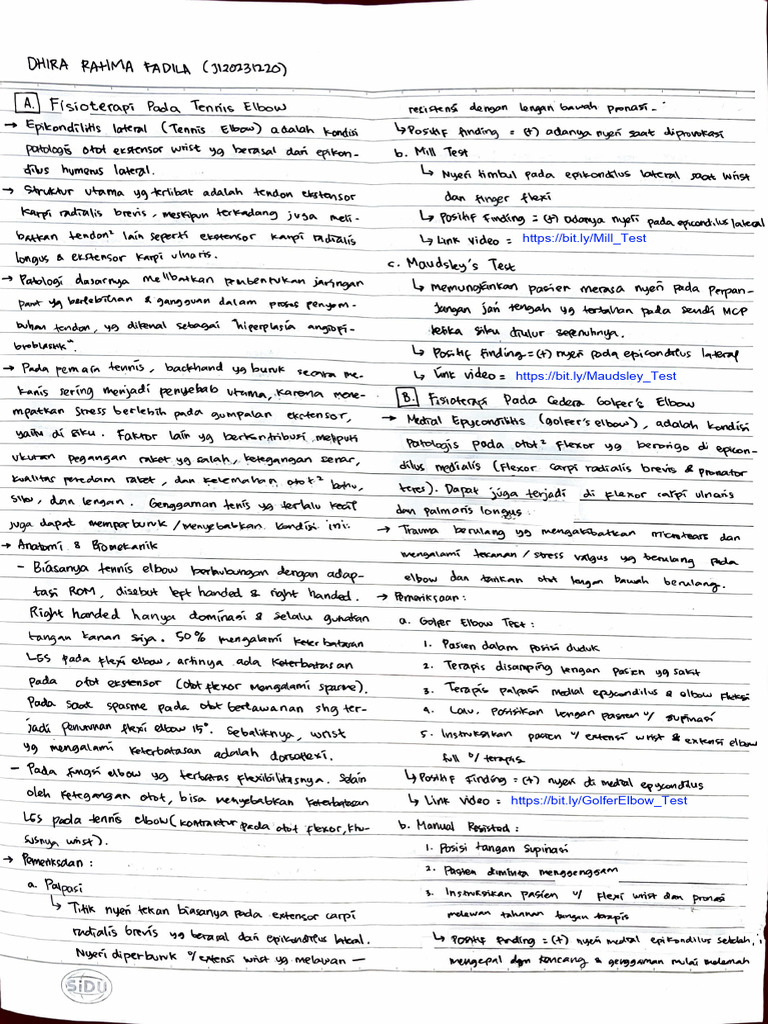 DHIRA RAHMA FADILA (J120231220)
A. Fisioterapi Pada Tennis Elbow
→ Epikondilitis lateral (Tennis Elbow) adalah kondisi
patologis otot ekstensor wrist yg berasal dari epikon-
dilus humerus lateral.
→ Struktur utama yg terlibat adalah tendon ekstensor
karpi radialis brevis, meskipun terkadang juga meli-
batkan tendon² lain seperti ekstensor karpi radialis
longus & ekstensor karpi ulnaris.
→ Patologi dasarnya melibatkan pembentukan jaringan
parut yg berlebihan & gangguan dalam proses penyem-
buhan tendon, yg dikenal sebagai "hiperplasia angiofi-
broblastik".
→ Pada pemain tennis, backhand yg buruk secara me-
kanis sering menjadi penyebab utama, karena mene-
mpatkan stress berlebih pada gumpalan ekstensor,
yaitu di siku. Faktor lain yg berkontribusi meliputi
ukuran pegangan raket yg salah, ketegangan senar,
kualitas peredam raket, dan kelemahan otot² bahu,
siku, dan lengan. Genggaman tenis yg terlalu kecil
juga dapat memperburuk/menyebabkan kondisi ini.
→ Anatomi & Biomekanik
- Biasanya tennis elbow berhubungan dengan adap-
tasi ROM, disebut left handed & right handed.
Right handed hanya dominasi & selalu gunakan
tangan kanan saja. 50% mengalami keterbatasan
LGS pada flexi elbow, artinya ada keterbatasan
pada otot ekstensor (otot flexor mengalami spasme).
Pada saat spasme pada otot berlawanan shg ter-
jadi penurunan flexi elbow 15°. Sebaliknya, wrist
yg mengalami keterbatasan adalah dorsoflexi.
- Pada fungsi elbow yg terbatas flexibilitasnya. Selain
oleh ketegangan otot, bisa menyebabkan keterbatasan
LGS pada tennis elbow (kontraktur pada otot flexor, khu-
susnya wrist).
→ Pemeriksaan :
a. Palpasi
↳ Titik nyeri tekan biasanya pada extensor carpi
radialis brevis yg berasal dari epikondilus lateral.
Nyeri diperburuk o/ extensi wrist yg melawan —
resistensi dengan lengan bawah pronasi.
↳ Positif finding = (+) adanya nyeri saat diprovokasi
b. Mill Test
↳ Nyeri timbul pada epikondilus lateral saat wrist
dan finger flexi
↳ Positif finding = (+) adanya nyeri pada epicondilus lateral
↳ Link video = https://bit.ly/Mill_Test
c. Maudsley's Test
↳ memungkinkan pasien merasa nyeri pada perpan-
jangan jari tengah yg tertahan pada sendi MCP
ketika siku diulur sepenuhnya.
↳ Positif finding = (+) nyeri pada epicondilus lateral
↳ Link video = https://bit.ly/Maudsley_Test
B. Fisioterapi Pada Cedera Golfer's Elbow
→ Medial Epycondilitis (golfer's elbow), adalah kondisi
patologis pada otot² flexor yg berorigo di epicon-
dilus medialis (flexor carpi radialis brevis & pronator
teres). Dapat juga terjadi di flexor carpi ulnaris
dan palmaris longus.
→ Trauma berulang yg mengakibatkan microtears dan
mengalami tekanan / stress valgus yg berulang pada
elbow dan tarikan otot lengan bawah berulang.
→ Pemeriksaan :
a. Golfer Elbow Test :
1. Pasien dalam posisi duduk
2. Terapis disamping lengan pasien yg sakit
3. Terapis palpasi medial epycondilus & elbow fleksi
4. Lalu, posisikan lengan pasien u/ supinasi
5. Instruksikan pasien u/ extensi wrist & extensi elbow
full o/ terapis
↳ Positif finding = (+) nyeri di medial epycondilus
↳ Link video = https://bit.ly/GolferElbow_Test
b. Manual Resisted :
1. Posisi tangan supinasi
2. Pasien diminta menggenggam
3. Instruksikan pasien u/ flexi wrist dan pronasi
melawan tahanan tangan terapis
↳ Positif finding = (+) nyeri medial epikondilus setelah
mengepal dgn kencang & genggaman mulai melemah
SiDU